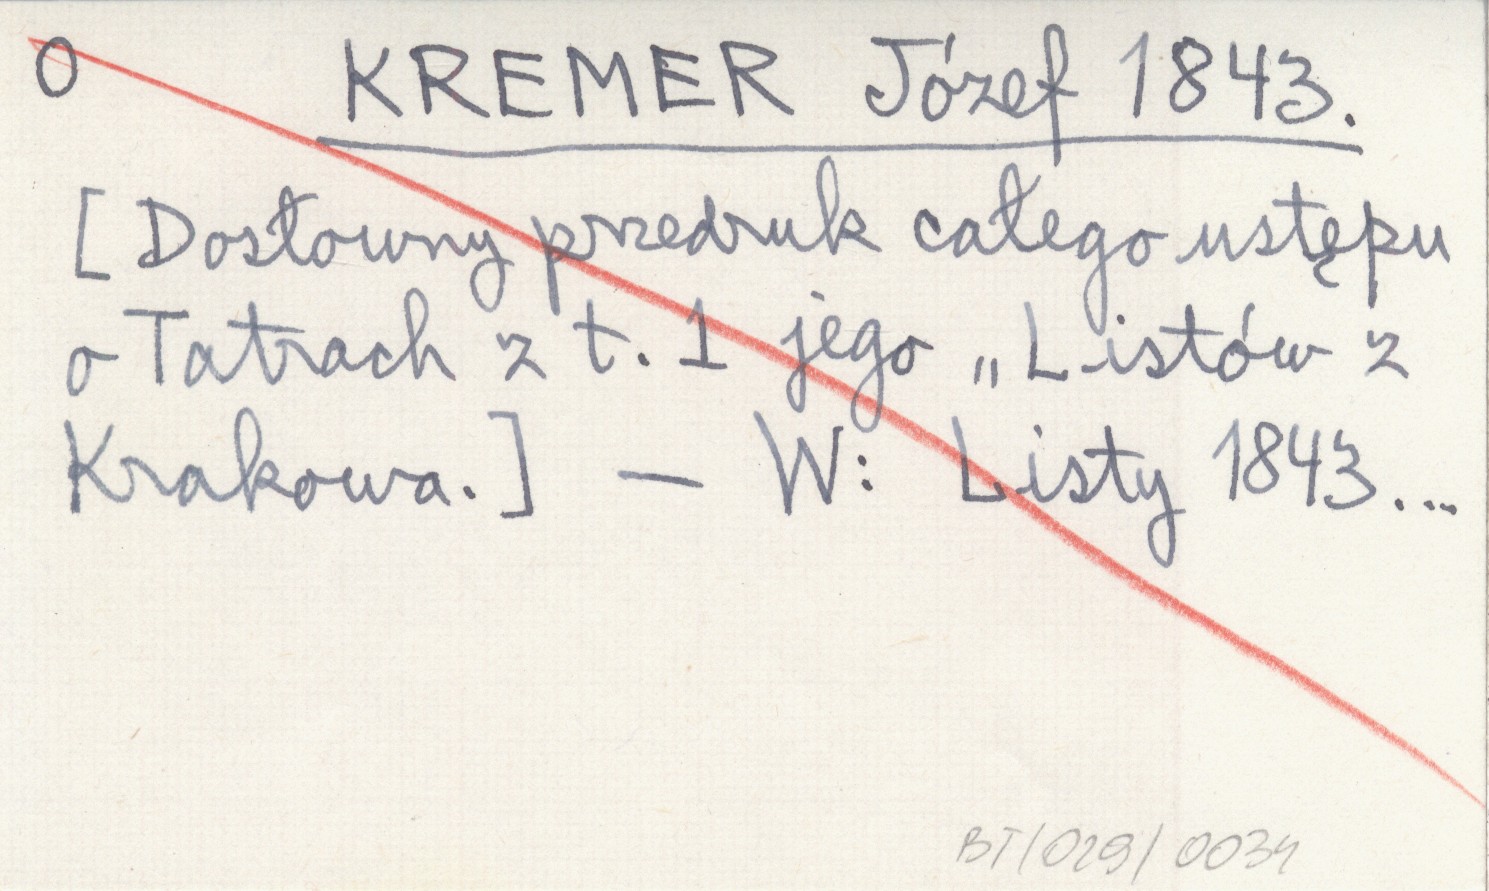 O KREMER Józef 1843.
[Dosłowny przedruk całego ustępu
o Tatrach z t. 1 jego „Listów z
Krakowa.] — W: Listy 1843...
BT/029/0034